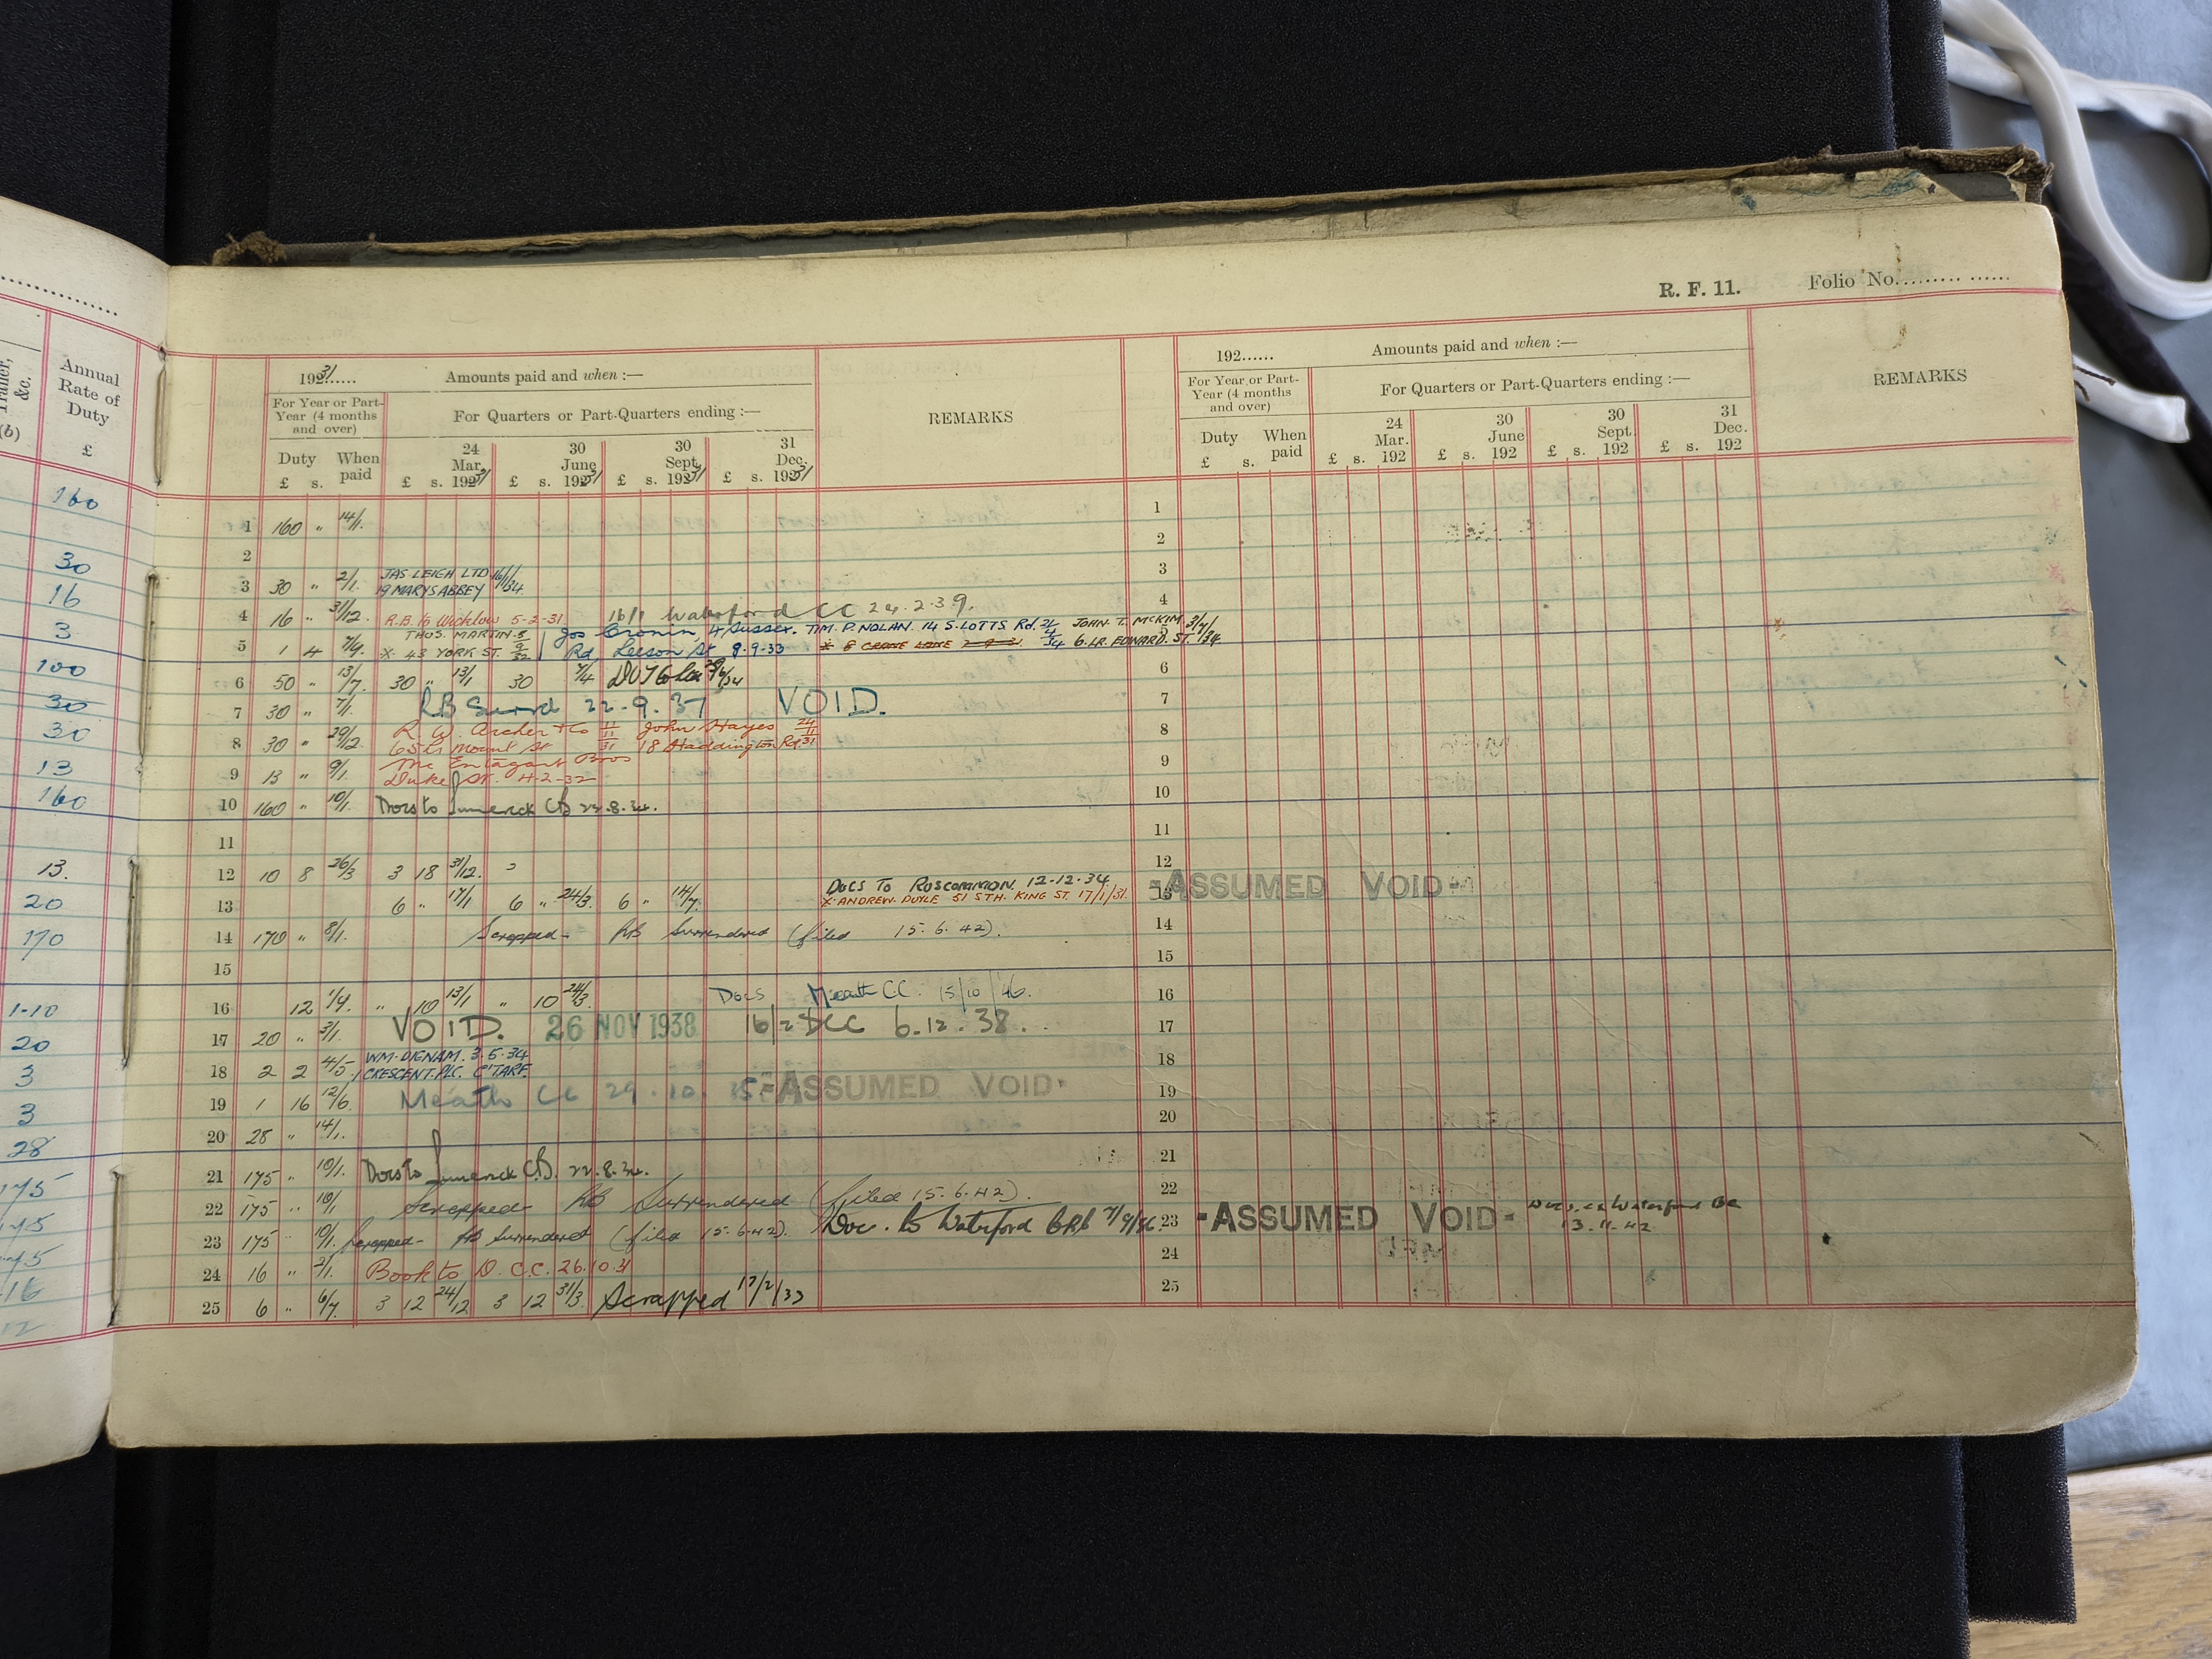 R. F. 11. Folio No.
Trailer, &c.
(b)
Annual Rate of Duty
£
160
30
16
3
100
30
30
13
160
13.
20
170
1-10
20
3
3
28
175
175
175
16
12
1931 Amounts paid and when :—
For Year or Part-Year (4 months and over)
For Quarters or Part-Quarters ending :—
REMARKS
Duty When paid
£ s.
24 Mar. 1931
30 June 1931
30 Sept. 1931
31 Dec. 1931
£ s. £ s. £ s. £ s.
192...... Amounts paid and when :—
For Year or Part-Year (4 months and over)
For Quarters or Part-Quarters ending :—
REMARKS
Duty When paid
£ s.
24 Mar. 192
30 June 192
30 Sept. 192
31 Dec. 192
£ s. £ s. £ s. £ s.
1 160 " 14/1. 1
2 2
3 30 " 2/1. JAS. LEIGH LTD 16/1/34 3
19 MARYS ABBEY
4 16 " 31/12. R.B. to Wicklow 5-2-31. 16/1 Waterford CC 24.2.39. 4
THOS. MARTIN 8/9/32 Jos Cronin, 4 Sussex. TIM. P. NOLAN. 14 S. LOTTS Rd. JOHN. T. McKIM 31/7/34
5 1 4 7/9. X. 43 YORK ST. Rd, Leeson St 8.9.33 6. LR. EDWARD. ST. 5
6 50 " 13/7. 30 " 13/1 30 7/4 6
7 30 " 7/1. RB Surrd 22.9.37 VOID. 7
8 30 " 29/12. R. W. Archer & Co 11/11/31 John Hayes 24/11/31 8
65 Lr Mount St 18 Haddington Rd
9 13 " 9/1. Mc Entagart Bros 9
Duke St. 4-2-32
10 160 " 10/1. Docs to Limerick CB 22.8.34. 10
11 11
12 10 8 26/3 3 18 31/12. 12
13 6 " 17/1 6 " 24/3. 6 " 14/7. DOCS TO ROSCOMMON. 12-12-34 13 ASSUMED VOID
X. ANDREW. DOYLE 51 STH. KING ST. 17/1/31.
14 170 " 8/1. Scrapped - RB Surrendered (filed 15.6.42). 14
15 15
16 12 1/9. " 10 13/1 " 10 24/3. Docs Meath C.C. 15/10/46. 16
17 20 " 3/1. VOID. 26 NOV 1938 16/2 DCC 6.12.38. 17
18 2 2 4/5. WM. DIGNAM. 3.5.34 18
1 CRESCENT. PLC. C'TARF.
19 1 16 12/6. Meath CC 29.10. ASSUMED VOID 19
20 28 " 14/1. 20
21 175 " 10/1. Docs to Limerick C.B. 22.8.34. 21
22 175 " 10/1 Scrapped RB Surrendered (filed 15.6.42). 22
23 175 " 10/1. Scrapped - RB Surrendered (filed 15.6.42). Doc. to Waterford 23 ASSUMED VOID
13.11.42
24 16 " 2/1. Book to D.C.C. 26.10.31 24
25 6 " 6/7. 3 12 24/12 3 12 31/3. Scrapped 17/2/33 25